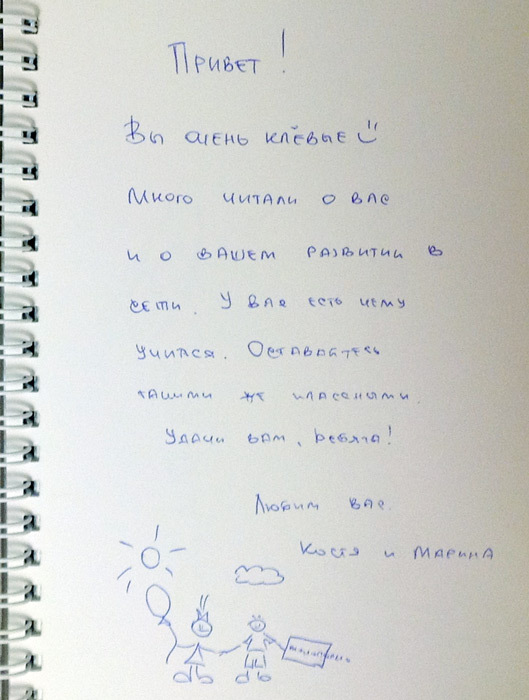 Привет!
Вы очень клёвые
Много читали о вас
и о вашем развитии в
сети. У вас есть чему
учится. Оставайтесь
такими же классными.
Удачи вам, ребята!
Любим вас.
Костя и Марина